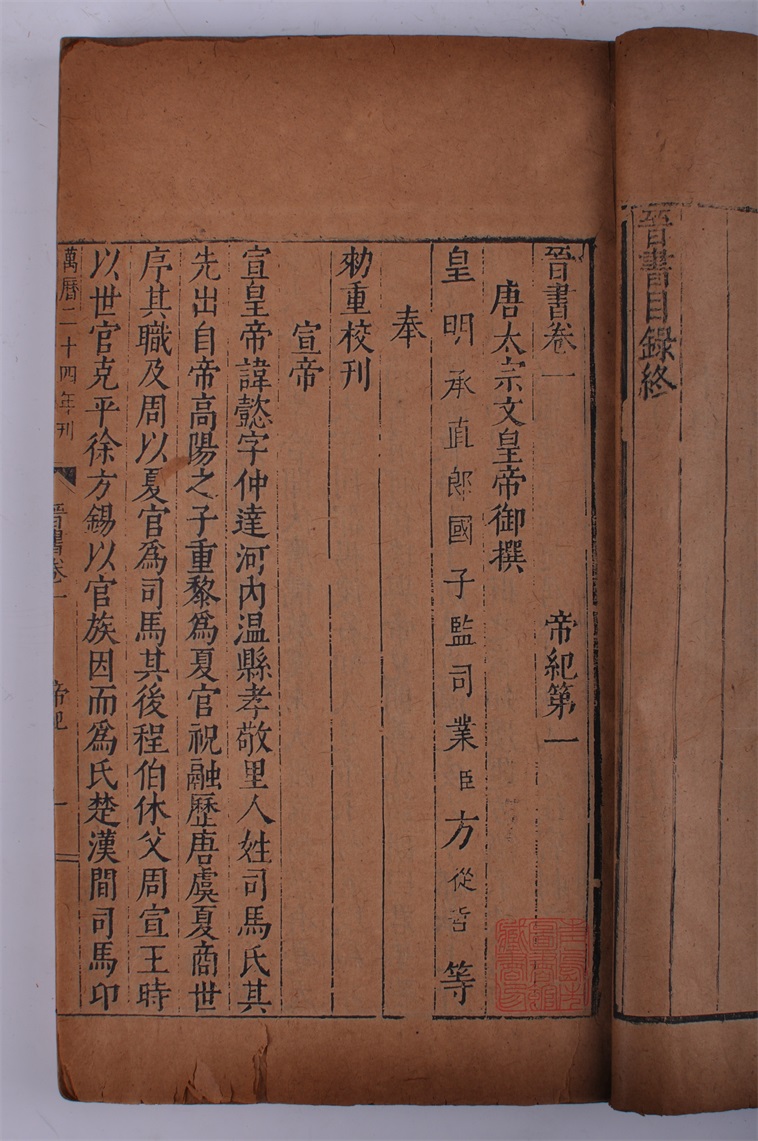 晉書目錄終
晉書卷一　帝紀第一
唐太宗文皇帝御撰
皇明承直郎國子監司業臣方從哲等
奉
勑重校刊
宣帝
宣皇帝諱懿字仲達河內溫縣孝敬里人姓司馬氏其
先出自帝高陽之子重黎爲夏官祝融歷唐虞夏商世
序其職及周以夏官爲司馬其後程伯休父周宣王時
以世官克平徐方錫以官族因而爲氏楚漢間司馬卬
萬曆二十四年刊
晉書卷一
帝紀
一